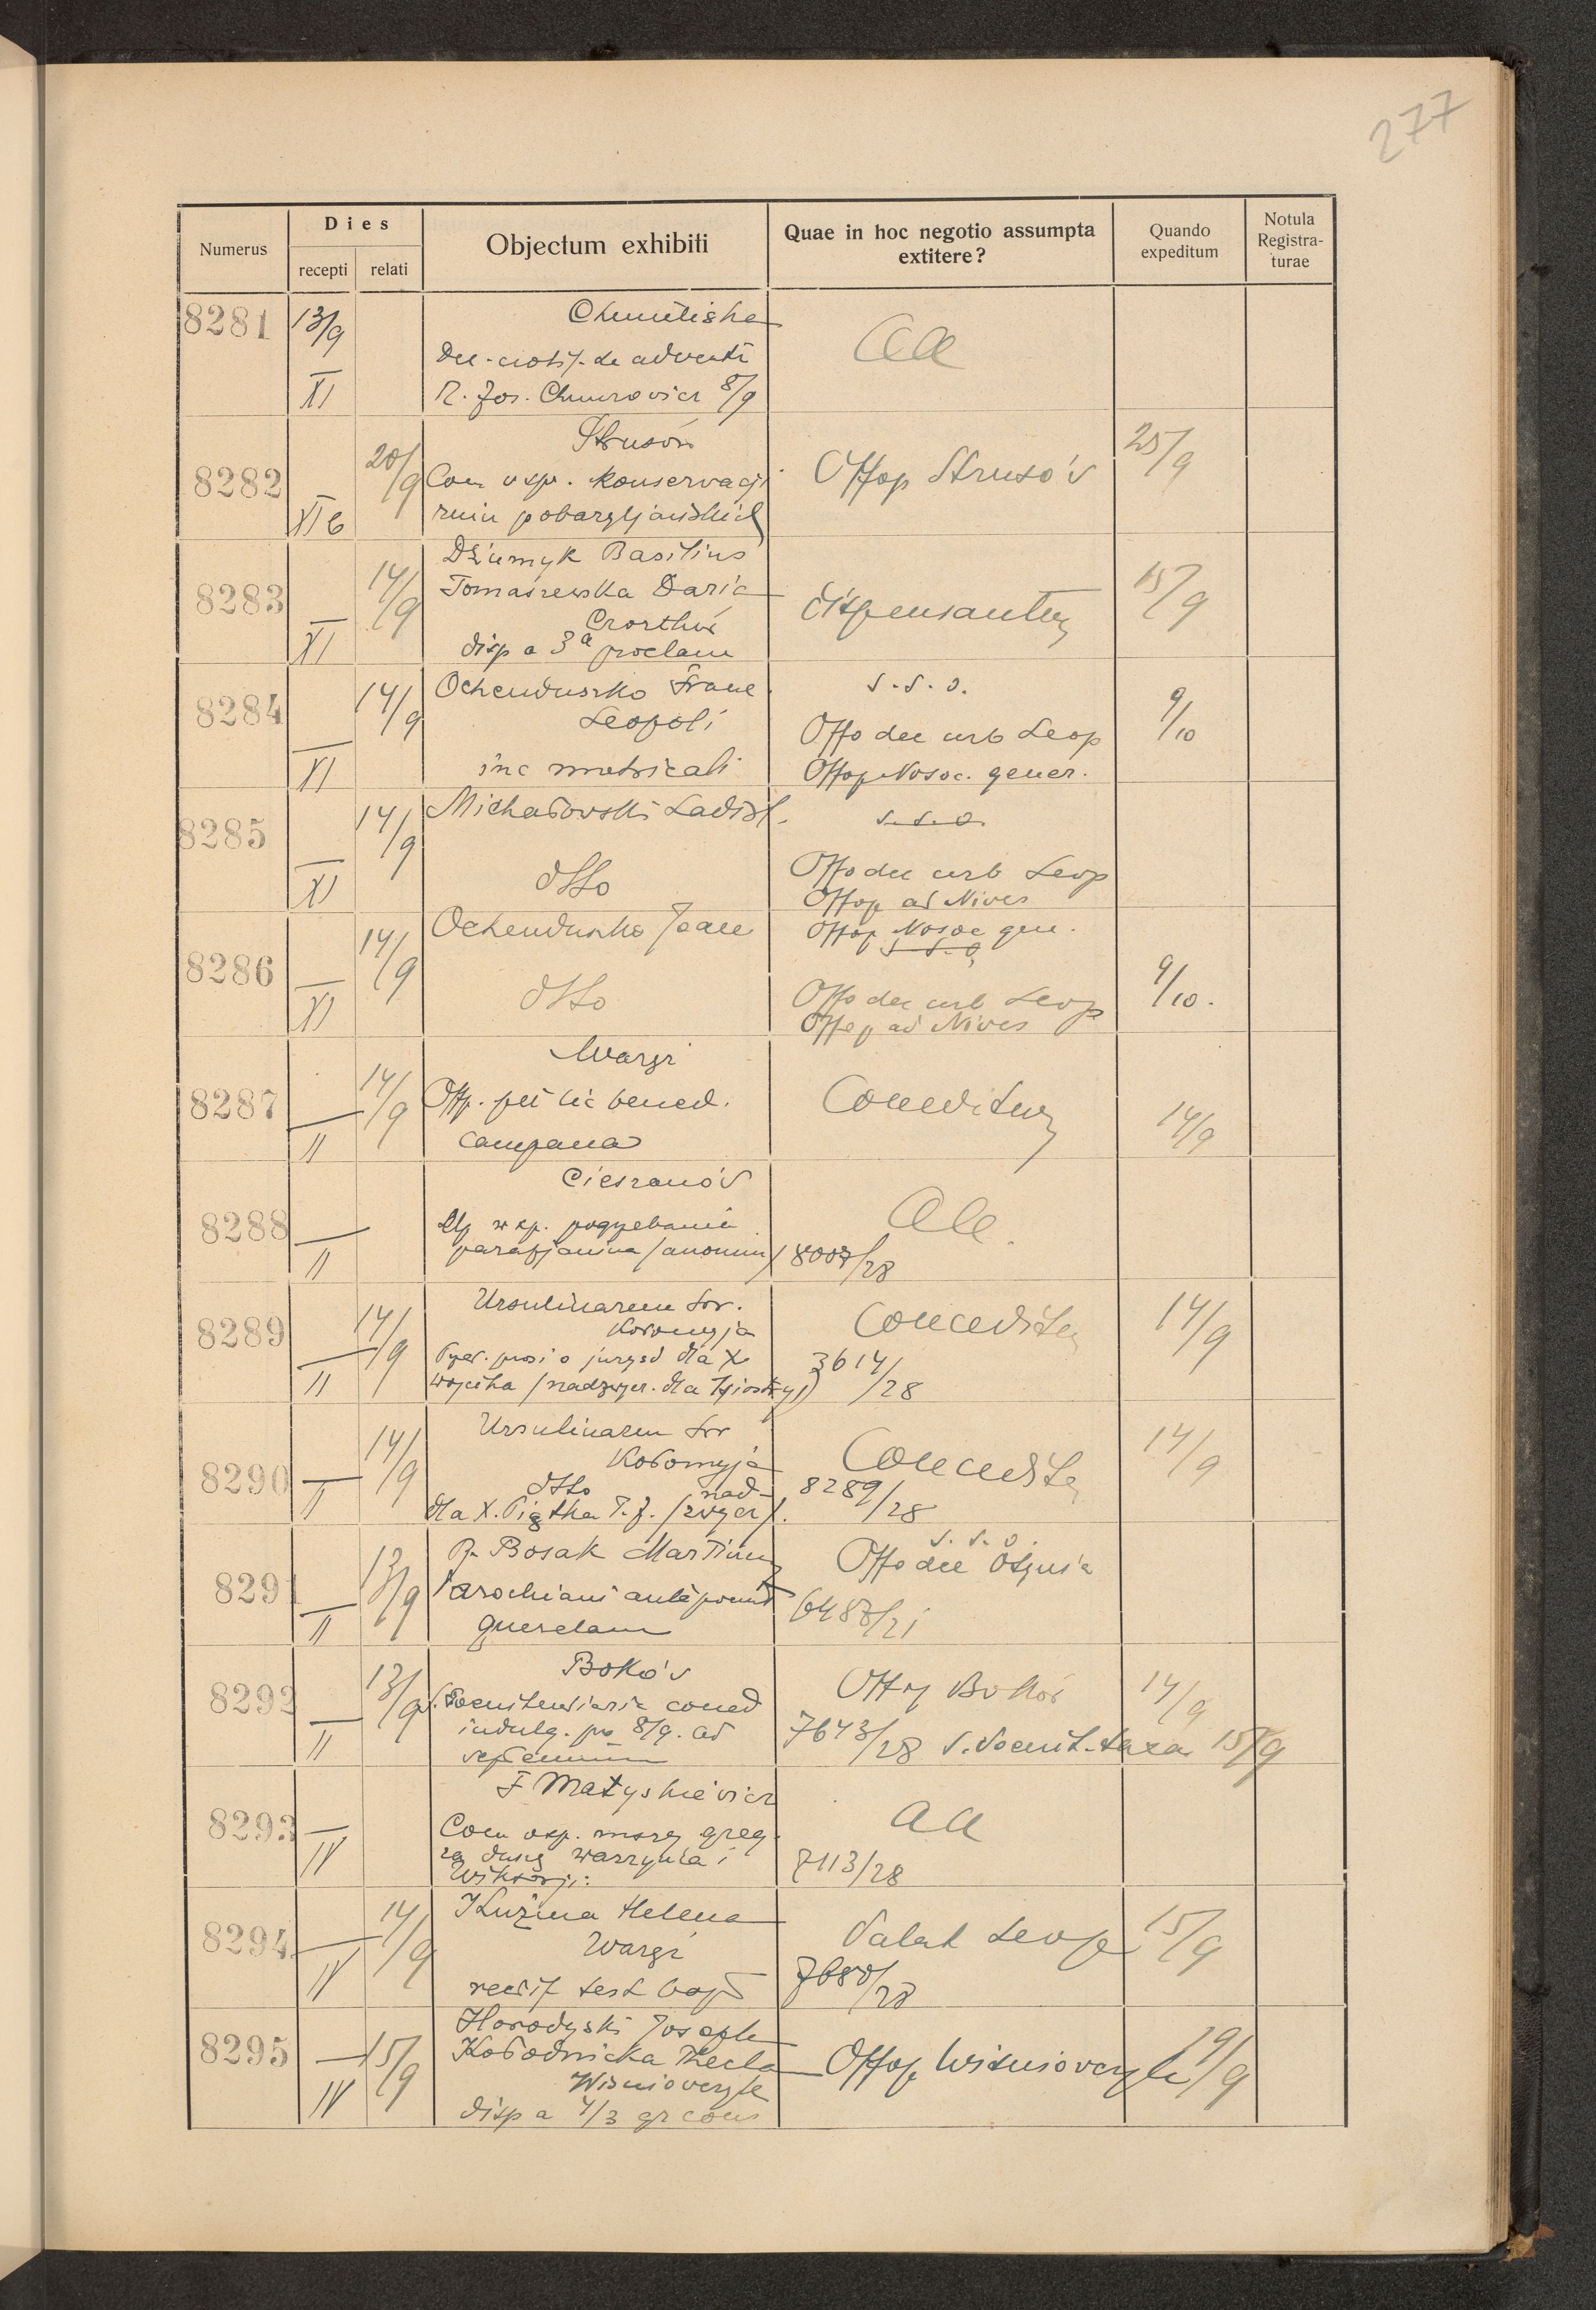 277
Numerus
Dies
recepti
relati
Objectum exhibiti
Quae in hoc negotio assumpta
extitere?
Quando
expeditum
Notula
Registra-
turae
8281
13/9
XI
R. Jos. 8/9
aa
8282
XI b
20/9
Strusów
konserwacji
ruin pobazyljańskich
Offop Strusów
25/9
8283
XI
14/9
Dziumyk Basilius
Tomaszewska Daria
disp a 3a proclam
dispensantur
15/9
8284
XI
14/9
Ochenduszko Franc
Leopoli
inc metricali
s. s. o.
Offo dec urb Leop
Offop Nosoc. gener.
9/10
8285
XI
14/9
Michałowski Ladisl.
dtto
s. s. o.
Offo dec urb Leop
Offop ad Nives
8286
XI
14/9
Ochenduszko
dtto
Offop Nosoc gen.
s. s. o.
Offo dec urb Leop
Offop ad Nives
9/10.
8287
II
14/9
Waręż
Offp. pet lic bened.
campana
Conceditur
14/9
8288
II
Cieszanów
w sp. pogrzebania
parafjanina /anonim/
aa
8007/28
8289
II
14/9
Ursulinarum Sor.
Kołomyja
prosi o juryzd dla X.
Wojcika /nadzwycz. dla
Conceditur
3614/28
14/9
8290
II
14/9
Ursulinarum Sor
Kołomyja
dtto nad-
dla X. Piątka T. J. /zwycz/.
Conceditur
8289/28
14/9
8291
II
13/9
R. Bosak Martinus
Parochiani
querelam
s. s. o.
Offo dec Otynia
6487/21
8292
II
13/9
Boków
S. Poenitentiaria conced
indulg. pro 8/9. ad
septennium
Offp Boków
7643/28 S. Poenit. taxa 15/9
14/9
8293
IV
F Matyskiewicz
Com wsp. mszy greg.
za duszę Wawrzyńca i
Wiktorji.
aa
7113/28
8294
IV
14/9
Kuźma Helena
Waręż
rectif test bapt
Palat Leop
7680/28
15/9
8295
IV
15/9
Horodyski Joseph
Kołodnicka Thecla
Wiśniowczyk
disp a 4/3 gr cons
Offop Wiśniowczyk
19/9